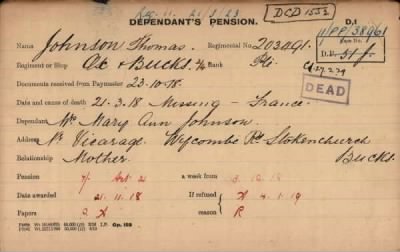 Reg. 11. 21/3/23
DCD 1552
DEPENDANT'S PENSION.
D.1
Name Johnson Thomas. Regimental No. 203091.
Regiment or Ship Ox & Bucks. Rank Pte
D.B. 51 f.
Documents received from Paymaster 23.10.18.
DEAD
Date and cause of death 21.3.18 Missing - France
Dependant Mrs Mary Ann Johnson.
Address Nr Vicarage Wycombe Rd Stokenchurch
Relationship Mother. Bucks.
Pension a week from 3.12.18
Date awarded 21.11.18 If refused 4.1.19
Papers reason R
Gp. 159